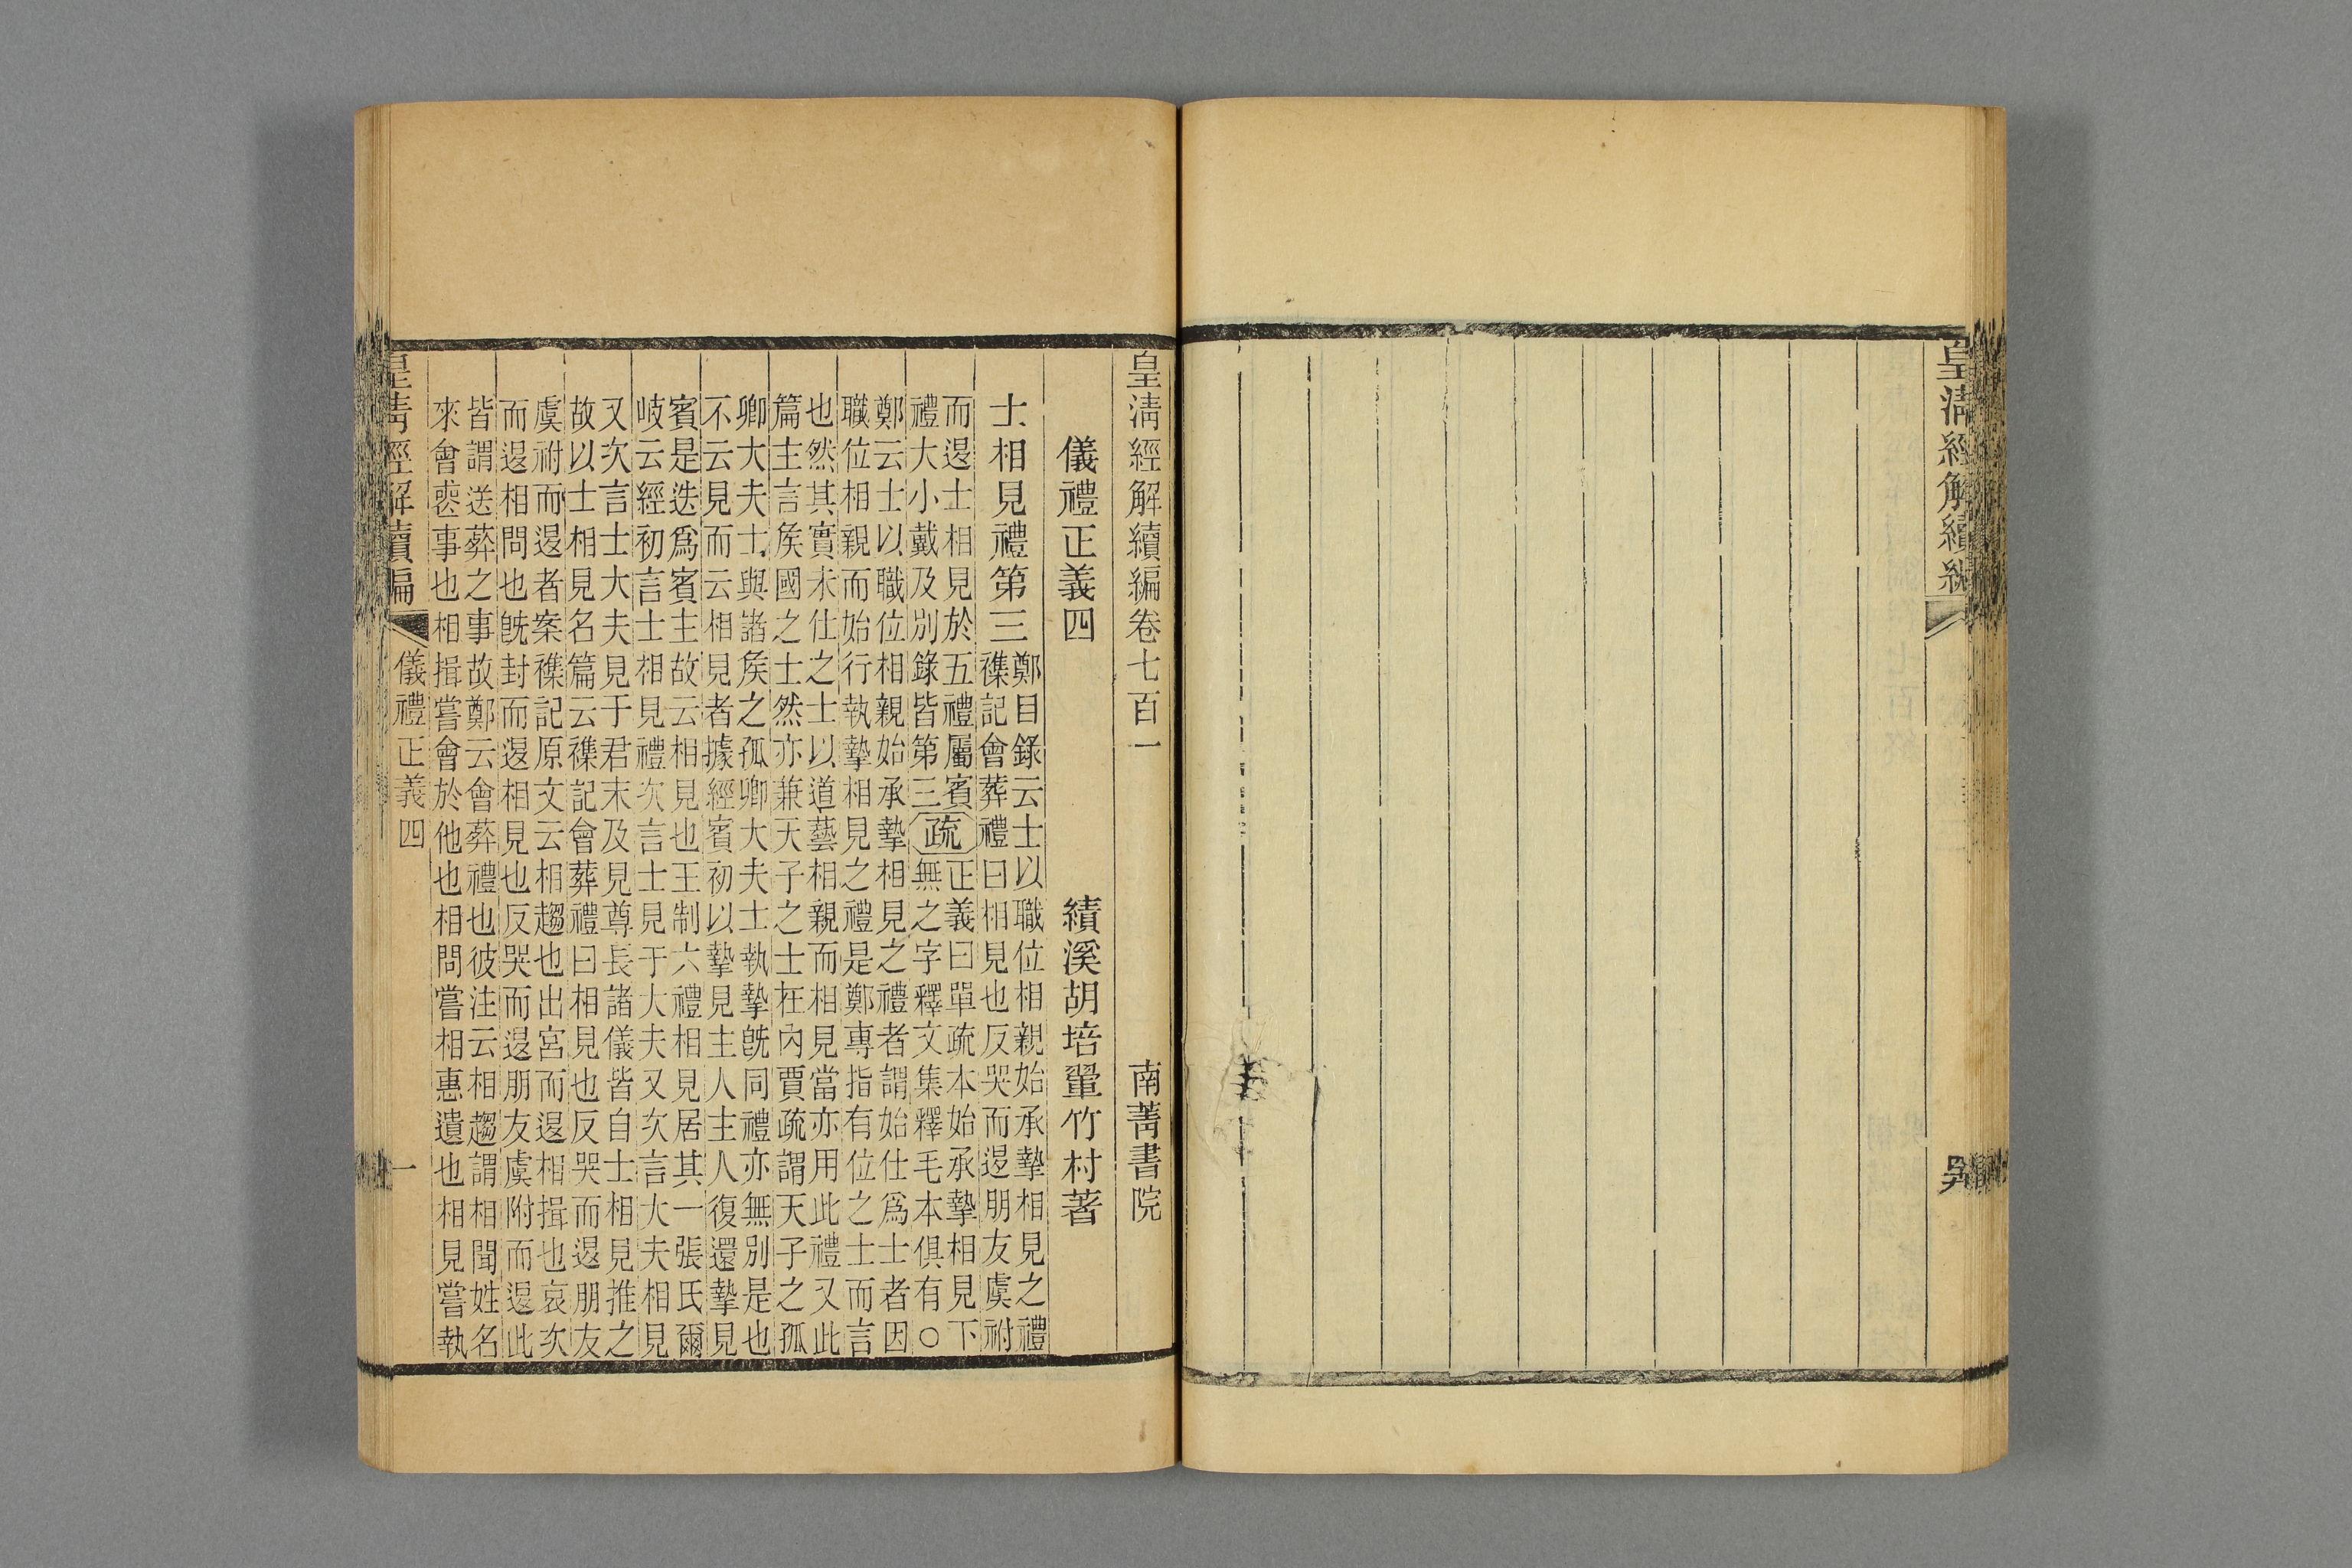 皇清經解續編
吳
皇清經解續編卷七百一 南菁書院
儀禮正義四 績溪胡培翬竹村著
士相見禮第三
鄭目錄云士以職位相親始承摯相見之禮
襍記會葬禮曰相見也反哭而退朋友虞祔
而退士相見於五禮屬賓
禮大小戴及別錄皆第三
疏
正義曰單疏本始承摯相見下
無之字釋文集釋毛本俱有○
鄭云士以職位相親始承摯相見之禮者謂始仕爲士者因
職位相親而始行執摯相見之禮是鄭專指有位之士而言
也然其實未仕之士以道藝相親而相見當亦用此禮又此
篇主言矦國之士然亦兼天子之士在內賈疏謂天子之孤
卿大夫士與諸矦之孤卿大夫士執摯旣同禮亦無別是也
不云見而云相見者據經賓初以摯見主人主人復還摯見
賓是迭爲賓主故云相見也王制六禮相見居其一張氏爾
岐云經初言士相見禮次言士見于大夫又次言大夫相見
又次言士大夫見于君末及見尊長諸儀皆自士相見推之
故以士相見名篇云襍記會葬禮曰相見也反哭而退朋友
虞祔而退者案襍記原文云相趨也出宮而退相揖也哀次
而退相問也旣封而退相見也反哭而退朋友虞附而退此
皆謂送葬之事故鄭云會葬禮也彼注云相趨謂相聞姓名
來會喪事也相揖嘗會於他也相問嘗相惠遺也相見嘗執
皇清經解續編 儀禮正義四 一